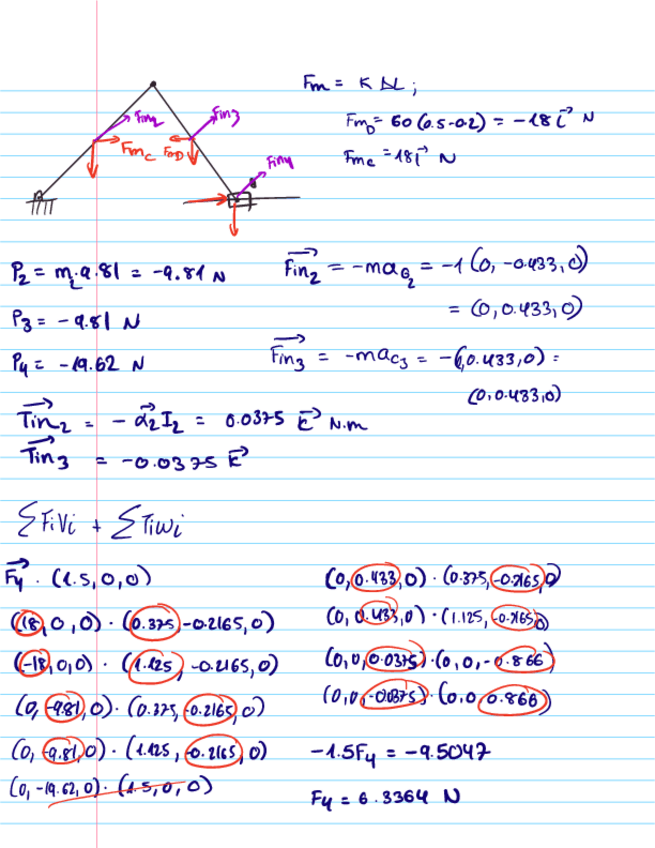 Fm = K ΔL ;
FmD = 60 (0.5-0.2) = -18 i⃗ N
Fmc = 18 i⃗ N
Fin2
Fin3
Fmc
FmD
Fin4
P2 = m2·9.81 = -9.81 N
Fin2 = -maG2 = -1 (0, -0.433, 0)
= (0, 0.433, 0)
P3 = -9.81 N
P4 = -19.62 N
Fin3 = -mac3 = -(0.433, 0) =
(0, 0.433, 0)
Tin2 = - α2 I2 = 0.0375 k⃗ N.m
Tin3 = -0.0375 k⃗
∑FiVi + ∑Tiwi
F4 · (1.5, 0, 0)
(18, 0, 0) · (0.375, -0.2165, 0)
(-18, 0, 0) · (1.125, -0.2165, 0)
(0, -9.81, 0) · (0.375, -0.2165, 0)
(0, -9.81, 0) · (1.125, -0.2165, 0)
(0, -19.62, 0) · (1.5, 0, 0)
(0, 0.433, 0) · (0.375, -0.2165, 0)
(0, 0.433, 0) · (1.125, -0.2165, 0)
(0, 0, 0.0375) · (0, 0, -0.866)
(0, 0, -0.0375) · (0, 0, 0.866)
-1.5F4 = -9.5047
F4 = 6.3364 N